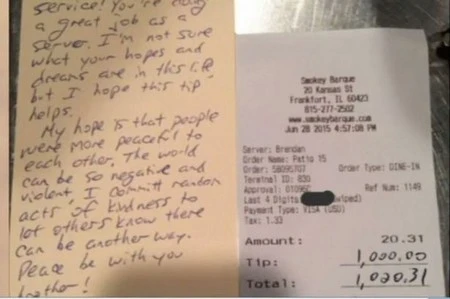 service! You're doing
a great job as a
server. I'm not sure
what your hopes and
dreams are in this life
but I hope this tip
helps.
My hope is that people
were more peaceful to
each other. The world
can be so negative and
violent. I committ random
acts of kindness to
let others know there
can be another way.
Peace be with you
brother!
Smokey Barque
20 Kansas St
Frankfort, IL 60423
815-277-2502
www.smokeybarque.com
Jun 28 2015 4:57:08 PM
Server: Brendan
Order Name: Patio 15
Order: Order Type: DINE-IN
Terminal ID: 830
Approval: Ref Num: 1149
Last 4 Digits
Payment Type: VISA (USD)
Tax: 1.33
Amount: 20.31
Tip: 1,000.00
Total: 1,020.31